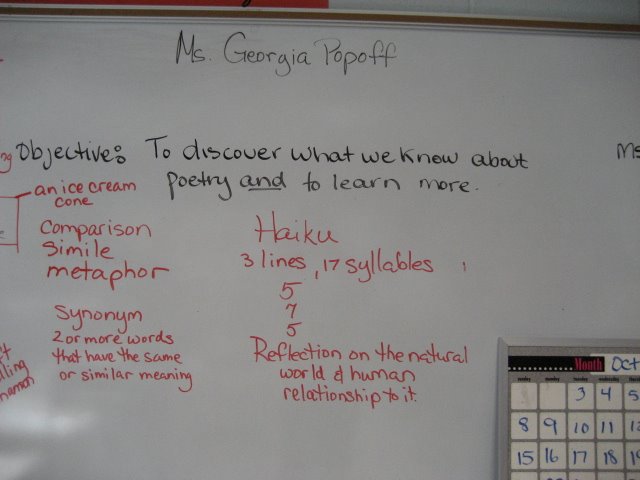 Ms. Georgia Popoff
Objective: To discover what we know about
poetry and to learn more.
Ms
an ice cream
cone
Comparison
Simile
metaphor
Synonym
2 or more words
that have the same
or similar meaning
Haiku
3 lines, 17 syllables
5
7
5
Reflection on the natural
world & human
relationship to it.
Month Oct
sunday monday tuesday wednesday
3 4 5
8 9 10 11 12
15 16 17 18 19